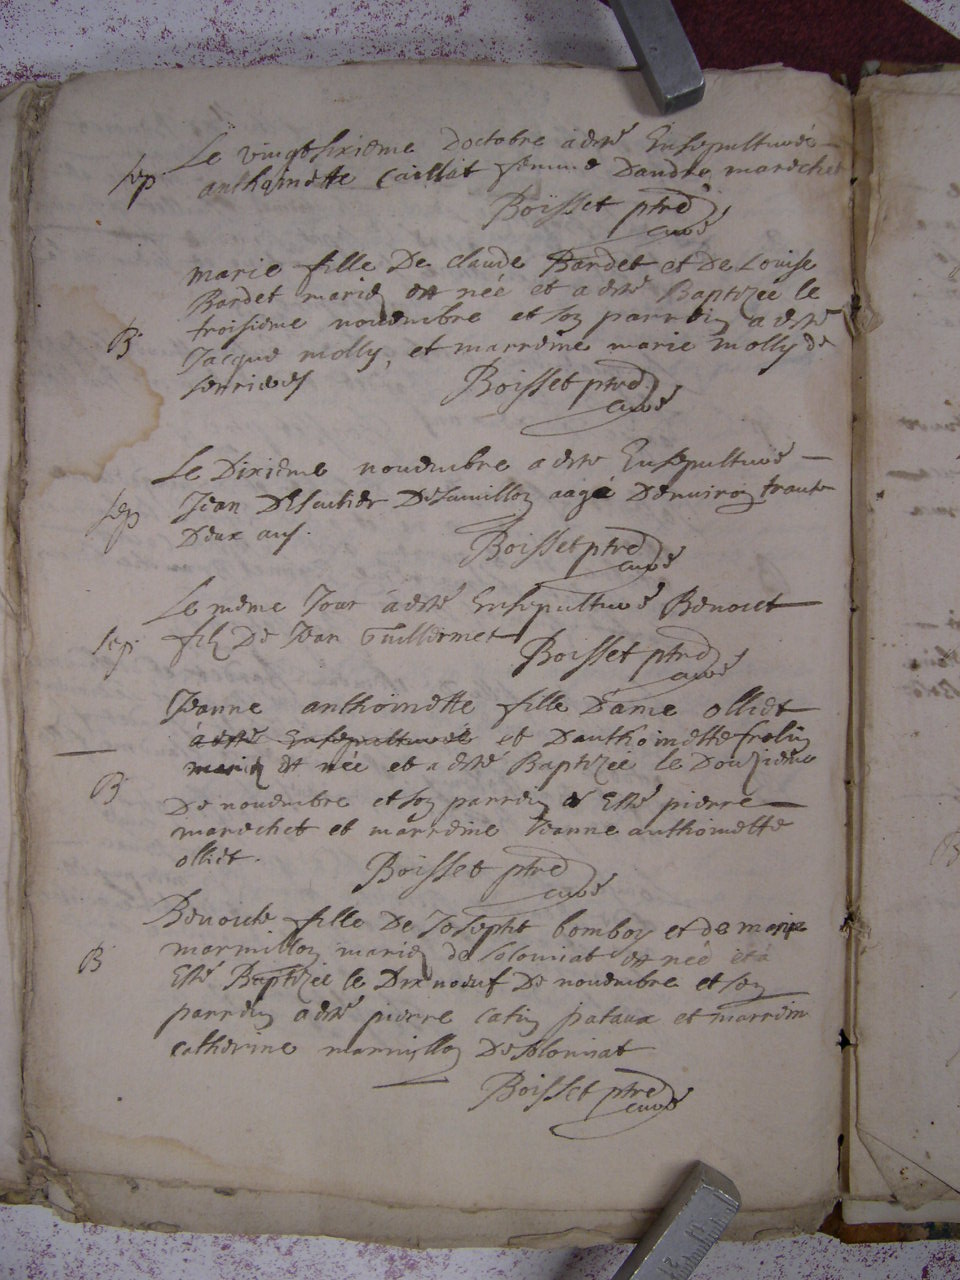 Le vingt sixieme doctobre a esté Ensepulturée
sep anthoinette Caillat femme Dandre marechet
Boisset ptre
curé
marie fille De Claude Bardet et De Louise
Bardet mariez est née et a esté Baptizee le
troisieme novembre et son parrein a esté
B Jacque molly, et marreine marie molly de
Boisset ptre
curé
Le Dixieme novembre a esté Ensepulturé
sep Jean agé Denviron trante
Deux ans.
Boisset ptre
curé
Le meme Jour a esté Ensepulturé Benoict
sep filz De Jean Guillermet
Boisset ptre
curé
Jeanne anthoinette fille Dame olliet
a esté Ensepulturée et Danthoinette
mariez est née et a esté Baptizee le Douzieme
B De novembre et son parrein a Esté pierre
marechet et marreine Jeanne anthoinette
olliet.
Boisset ptre
curé
Benoite fille De Joseph bomboy et de marie
B marmillon mariez de Soloniat est née et a
Esté Baptizée le Dix noeuf De novembre et son
parrein a esté pierre catin pataux et marrein
catherine marmillon De Soloniat
Boisset ptre
curé